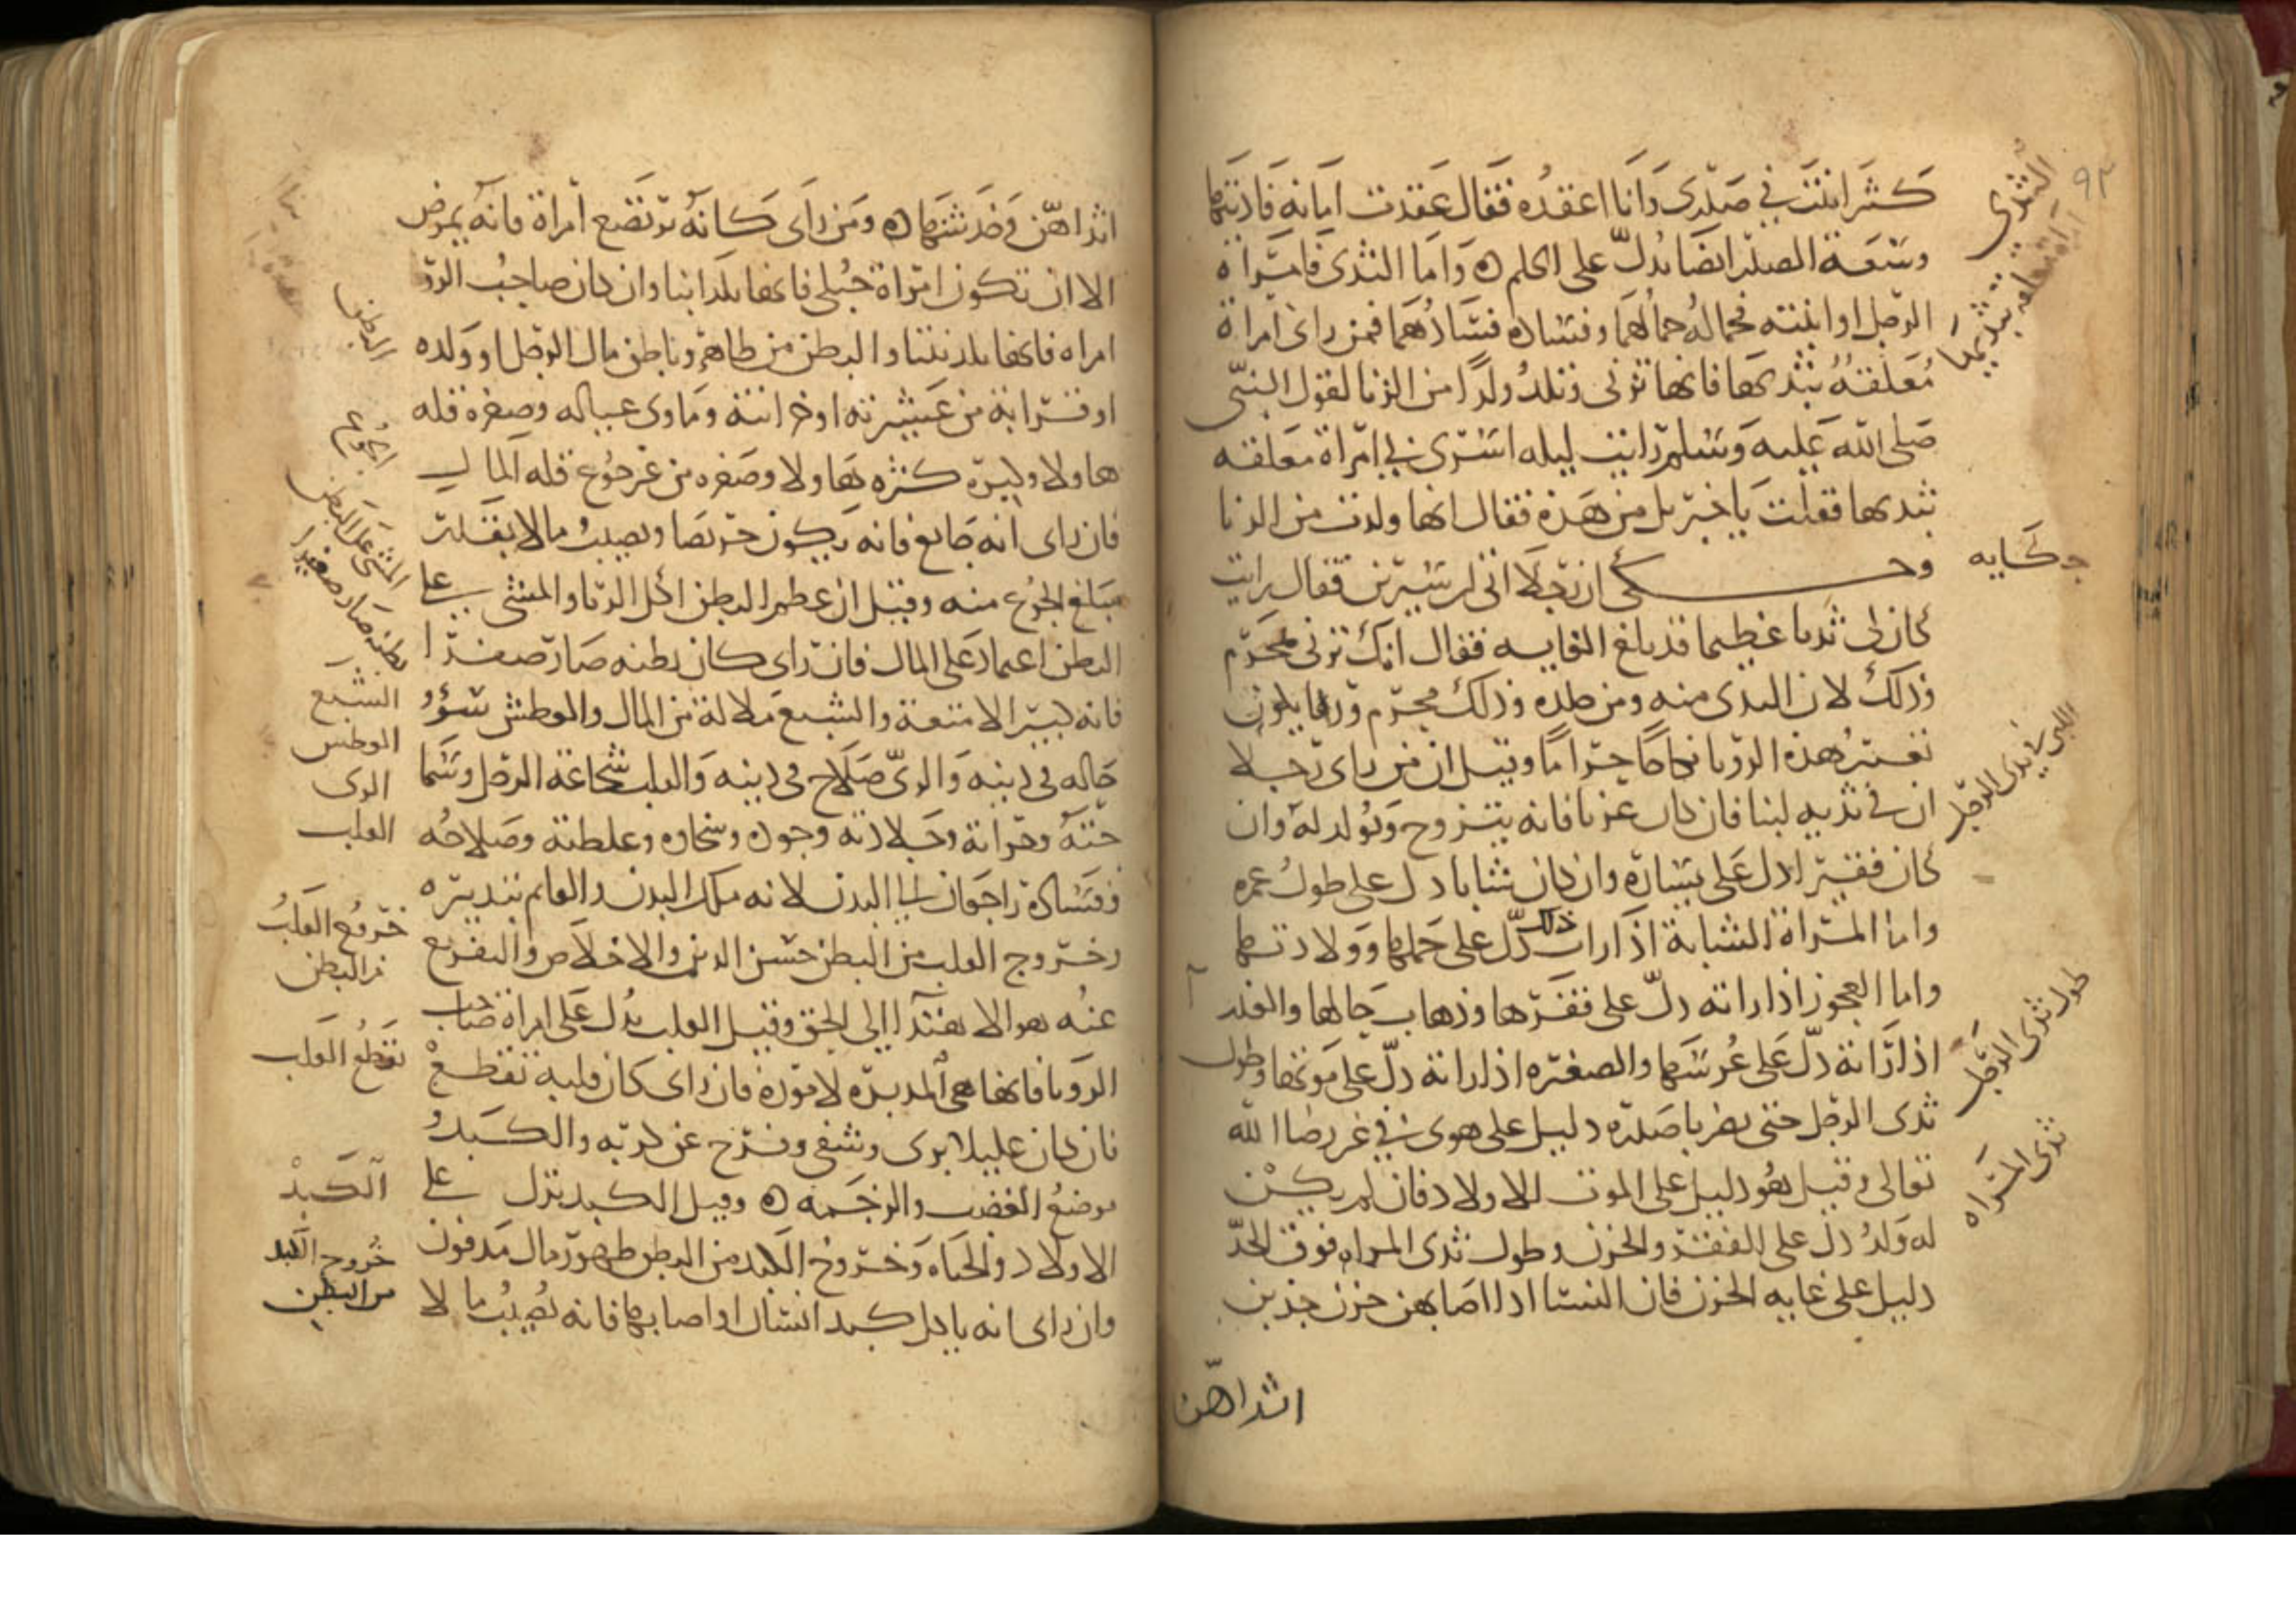 كثر انبثت في صدري وأنا اعقده فقال عقدت امانة فاديتها
وسعة الصدر ايضا يدل على الحلم ه واما الثدي فامراة
الرجل او ابنته فجماله جمالهما وفساده فسادهما فمن راى امراة
معلقة بثديها فانها تزنى وتلد ولدا من الزنا لقول النبي
صلى الله عليه وسلم رايت ليلة اسرى بي امراة معلقة
بثديها فقلت يا جبريل من هذه فقال انها ولدت من الزنا
وحكى ان رجلا اتى ابن سيرين فقال رايت
كان لى ثديا عظيما قد بلغ الغاية فقال انك تزنى بمحرم
وذلك لان الثدى منه ومن جلده وذلك محرم وربما يكون
تفسير هذه الرويا نكاحا حراما وقيل ان من راى رجلا
ان في ثديه لبنا فان كان عزبا فانه يتزوج ويولد له وان
كان فقيرا دل على يساره وان كان شابا دل على طول عمره
واما المراة الشابة اذا رات ذلك دل على حملها وولادتها
واما العجوز اذا راته دل على فقرها وذهاب حالها
اذا راته دل على عرسها والصغيره اذا راته دل على موتها وطول
ثدى الرجل حتى يضربا صدره دليل على هوى في غير رضا الله
تعالى وقيل هو دليل على الموت للاولاد فان لم يكن
له ولد دل على الفقر والحزن وطول ثدى المراه فوق الحد
دليل على غاية الحزن فان النسا اذا اصابهن حزن جذبن
اثداهن
الثدي
حكايه
اللبن في ثدى الرجل
طول ثدى الرجل
ثدى المراه
٩٣
اثداهن وخدشنها ه ومن راى كانه يرضع امراة فانه يمرض
الا ان تكون امراة حبلى فانها تلد ابنا وان كان صاحب الرو
امراه فانها تلد بنتا والبطن من ظاهره وباطن مال الرجل او ولده
او قرابة من عشيرته او خزانته وماوى عياله وصغره قلة
هاولا وكبره كثرة هاولا وصغره من غير جوع قلة المال
فان راى انه جايع فانه يكون حريصا ويصيب مالا بقدر
مبلغ الجوع منه وقيل ان عظم البطن اكل الربا والمشى على
البطن اعتماد على المال فان راى كان بطنه صار صغيرا
فانه كبير الامتعة والشبع ملالة من المال والعطش سوء
حاله في دينه والري صلاح في دينه والقلب شجاعة الرجل وسما
حته وجراته وجلادته وجوده وسخاوه وغلظته وصلاحه
وفساده راجعان الى البدن لانه ملك البدن والقايم بتدبيره
وخروج القلب من البطن حسن الدين والاخلاص والتفريع
عنه هو الاهتدا الى الحق وقيل القلب يدل على امراة صاحب
الرويا فانها هي المدبره لاموره فان راى كان قلبه تقطع
فان كان عليلا برى وشفى وفرج عن كربه والكبد
موضع الغضب والرحمه ه وقيل الكبد تدل على
الاولاد والحياه وخروج الكبد من البطن ظهور مال مدفون
وان راى انه ياكل كبد انسان او اصابها فانه يصيب مالا
البطن
الجوع
المشى على البطن
بطنه صار صغيرا
الشبع
العطش
الرى
القلب
خروج القلب
من البطن
تقطع القلب
الكبد
خروج الكبد
من البطن